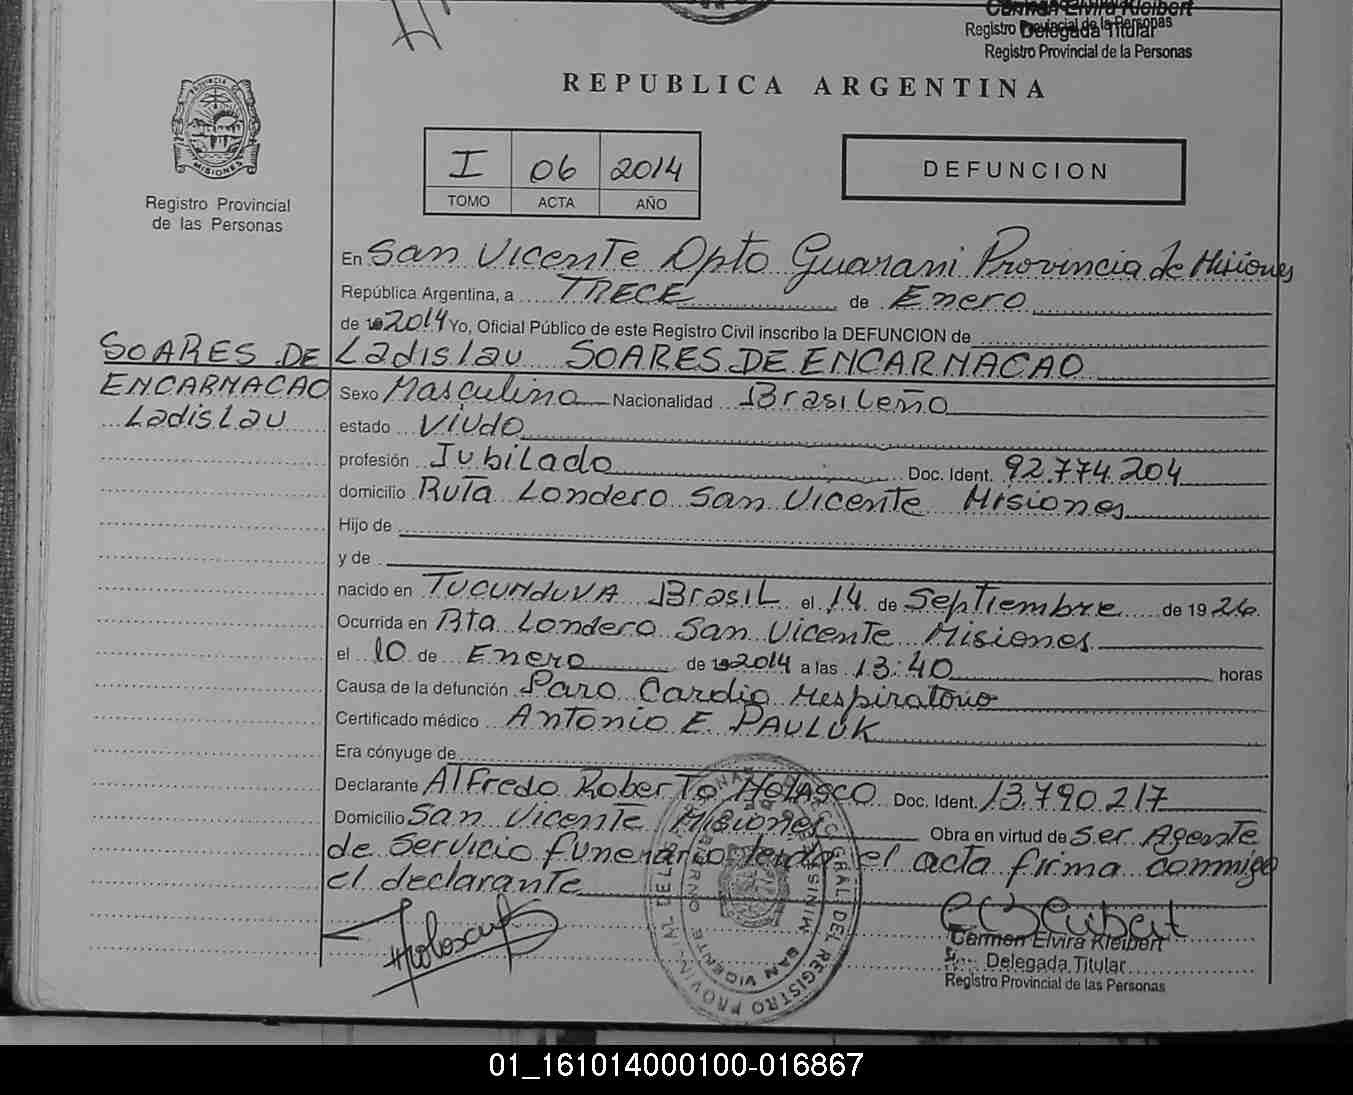 Carmen Elvira Kleibert
Delegada Titular
Registro Provincial de las Personas
Registro Provincial de la Personas
REPUBLICA ARGENTINA
PROVINCIA DE
MISIONES
Registro Provincial
de las Personas
I 06 2014
TOMO ACTA AÑO
DEFUNCION
En San Vicente Dpto Guarani Provincia de Misiones
República Argentina, a TRECE de Enero
de 19 2014 Yo, Oficial Público de este Registro Civil inscribo la DEFUNCION de
Ladislau SOARES DE ENCARNACAO
SOARES DE
ENCARNACAO
Ladislau
Sexo Masculino Nacionalidad Brasileño
estado Viudo
profesión Jubilado Doc. Ident. 92.774.204
domicilio Ruta Londero San Vicente Misiones
Hijo de
y de
nacido en TUCUNDUVA Brasil el 14 de Septiembre de 19 26.
Ocurrida en Rta Londero San Vicente Misiones
el 10 de Enero de 19 2014 a las 13:40 horas
Causa de la defunción Paro Cardio Respiratorio
Certificado médico Antonio E. PAULUK
Era cónyuge de
Declarante Alfredo Roberto Doc. Ident. 13.790.217
Domicilio San Vicente Misiones Obra en virtud de ser Agente
de Servicio funerario leida el acta firma conmigo
el declarante
Carmen Elvira Kleibert
Delegada Titular
Registro Provincial de las Personas
SAN VICENTE
01_161014000100-016867